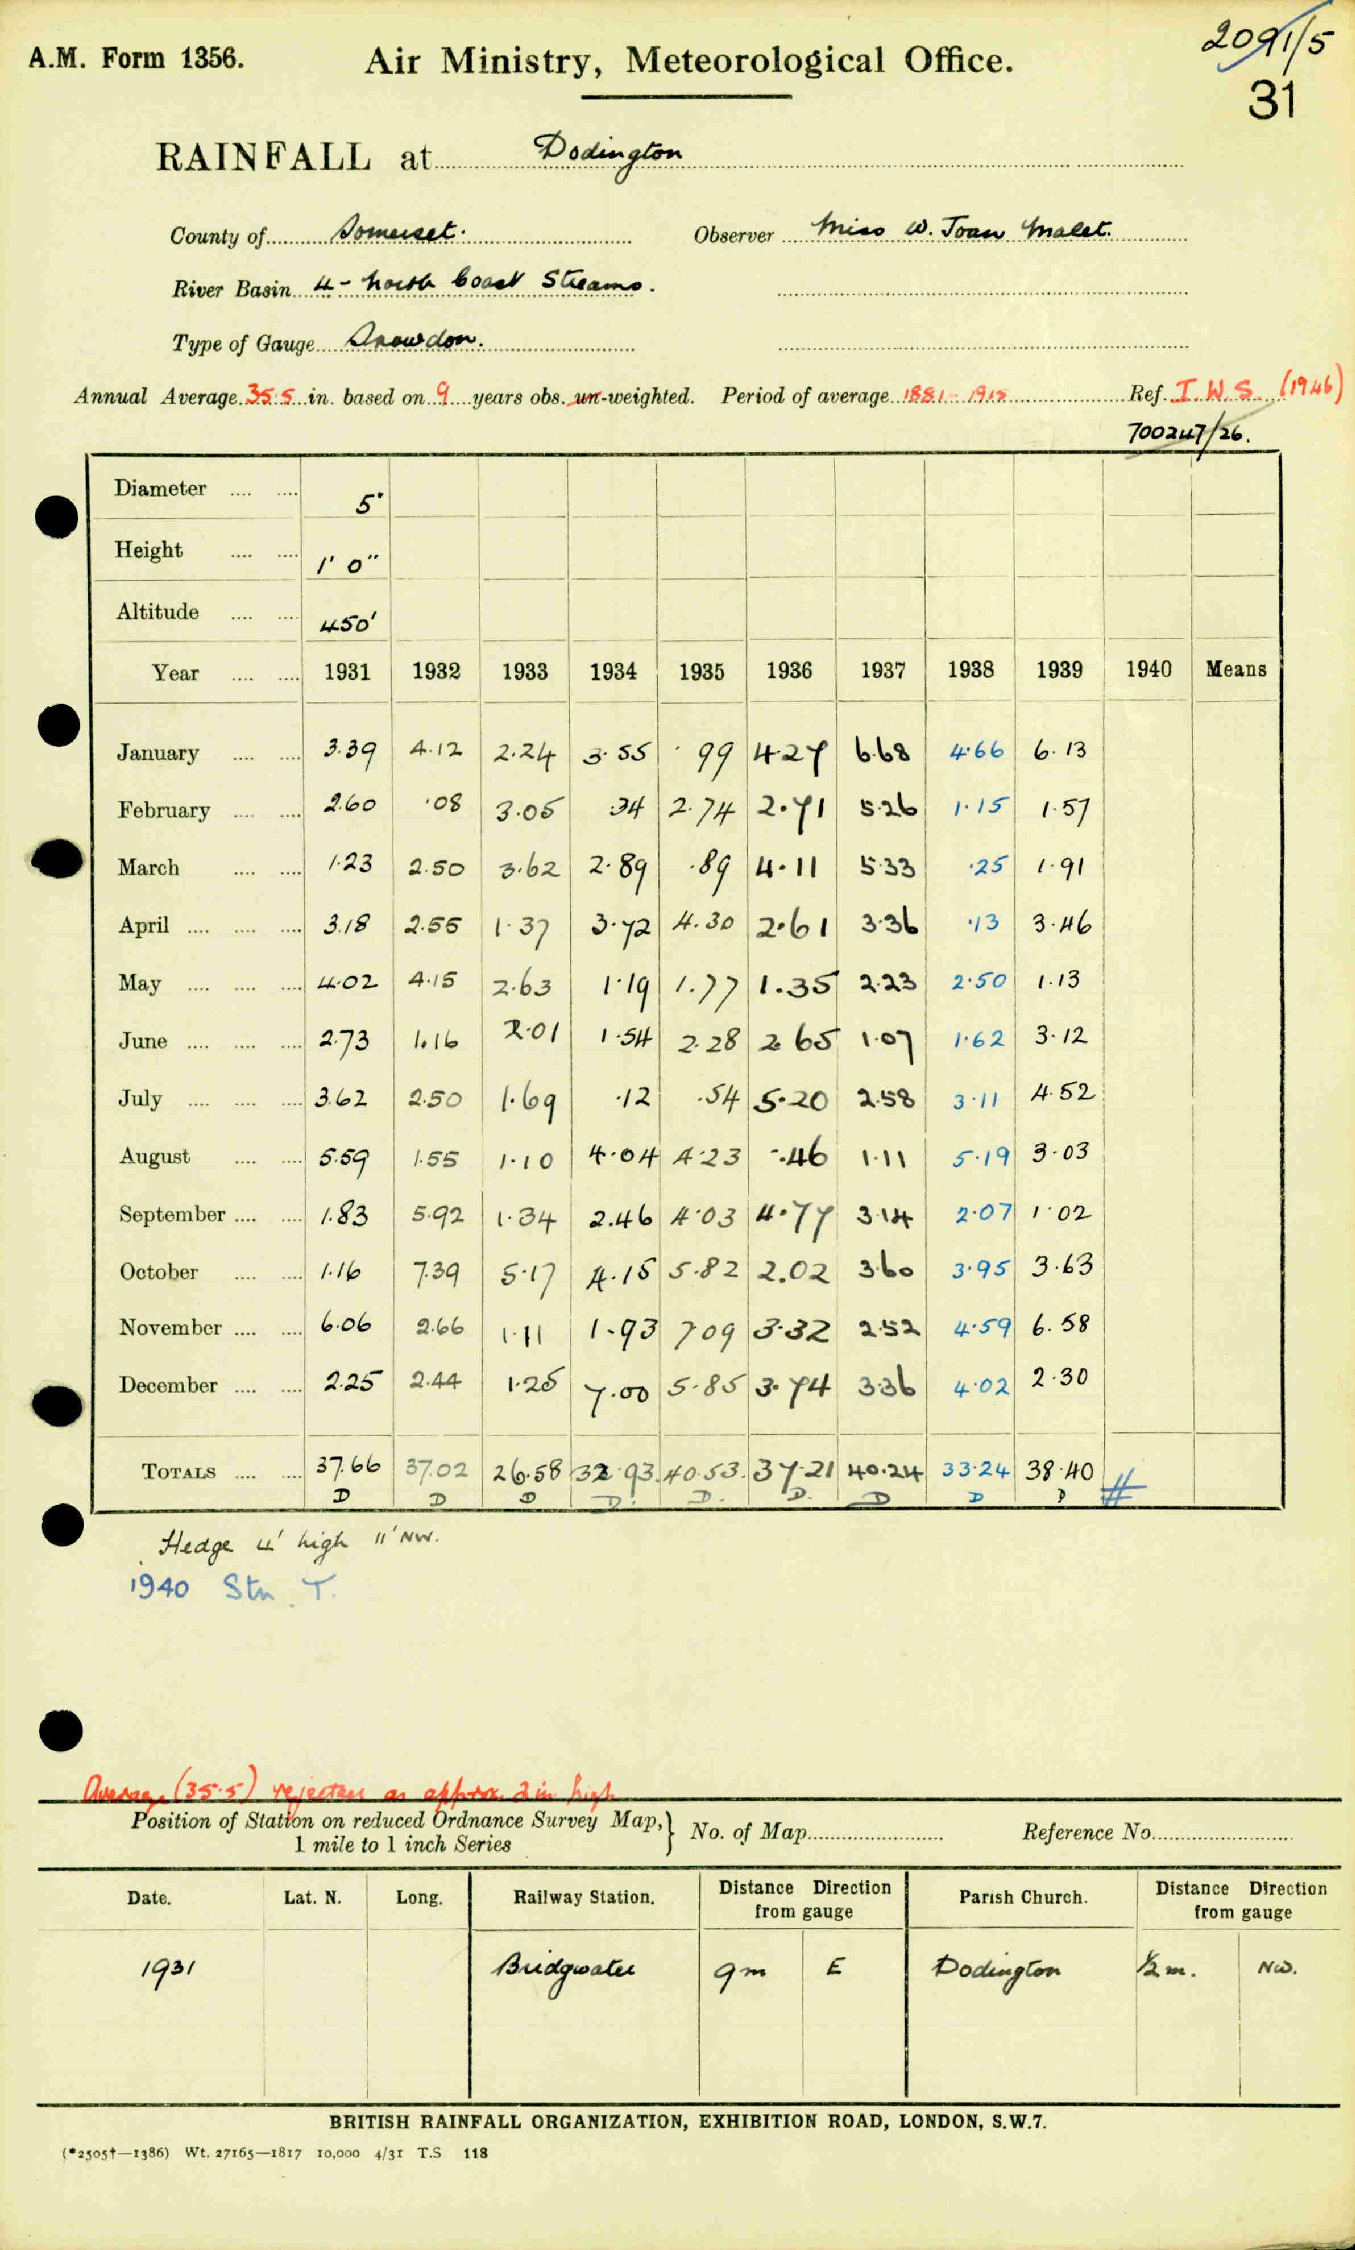 2091/5
A.M. Form 1356. Air Ministry, Meteorological Office.
31
RAINFALL at Dodington
County of Somerset. Observer Miss W. Joan Malet.
River Basin 4 - North Coast Streams.
Type of Gauge Snowdon.
Annual Average 35.5 in. based on 9 years obs. un-weighted. Period of average 1881-1915 Ref. I.W.S. (1946)
700247/26.
Diameter .... .... 5"
Height .... .... 1' 0"
Altitude .... .... 450'
Year .... .... 1931 1932 1933 1934 1935 1936 1937 1938 1939 1940 Means
January .... .... 3.39 4.12 2.24 3.55 .99 4.27 6.68 4.66 6.13
February .... .... 2.60 .08 3.05 .34 2.74 2.71 5.26 1.15 1.57
March .... .... 1.23 2.50 3.62 2.89 .89 4.11 5.33 .25 1.91
April .... .... .... 3.18 2.55 1.37 3.72 4.30 2.61 3.36 .13 3.46
May .... .... .... 4.02 4.15 2.63 1.19 1.77 1.35 2.23 2.50 1.13
June .... .... .... 2.73 1.16 2.01 1.54 2.28 2.65 1.07 1.62 3.12
July .... .... .... 3.62 2.50 1.69 .12 .54 5.20 2.58 3.11 4.52
August .... .... 5.59 1.55 1.10 4.04 4.23 .46 1.11 5.19 3.03
September .... .... 1.83 5.92 1.34 2.46 4.03 4.77 3.14 2.07 1.02
October .... .... 1.16 7.39 5.17 4.15 5.82 2.02 3.60 3.95 3.63
November .... .... 6.06 2.66 1.11 1.93 7.09 3.32 2.52 4.59 6.58
December .... .... 2.25 2.44 1.25 7.00 5.85 3.74 3.36 4.02 2.30
TOTALS .... .... 37.66 37.02 26.58 32.93 40.53 37.21 40.24 33.24 38.40 #
D D D D. D. D. D D D
Hedge 4' high 11' NW.
1940 Stn T.
Average (35.5) rejected as approx. 2 in high
Position of Station on reduced Ordnance Survey Map,} No. of Map Reference No.
1 mile to 1 inch Series
Date. Lat. N. Long. Railway Station. Distance Direction from gauge Parish Church. Distance Direction from gauge
1931 Bridgwater 9m E Dodington ½m. NW.
BRITISH RAINFALL ORGANIZATION, EXHIBITION ROAD, LONDON, S.W.7.
(*2505†—1386) Wt. 27165—1817 10,000 4/31 T.S 118